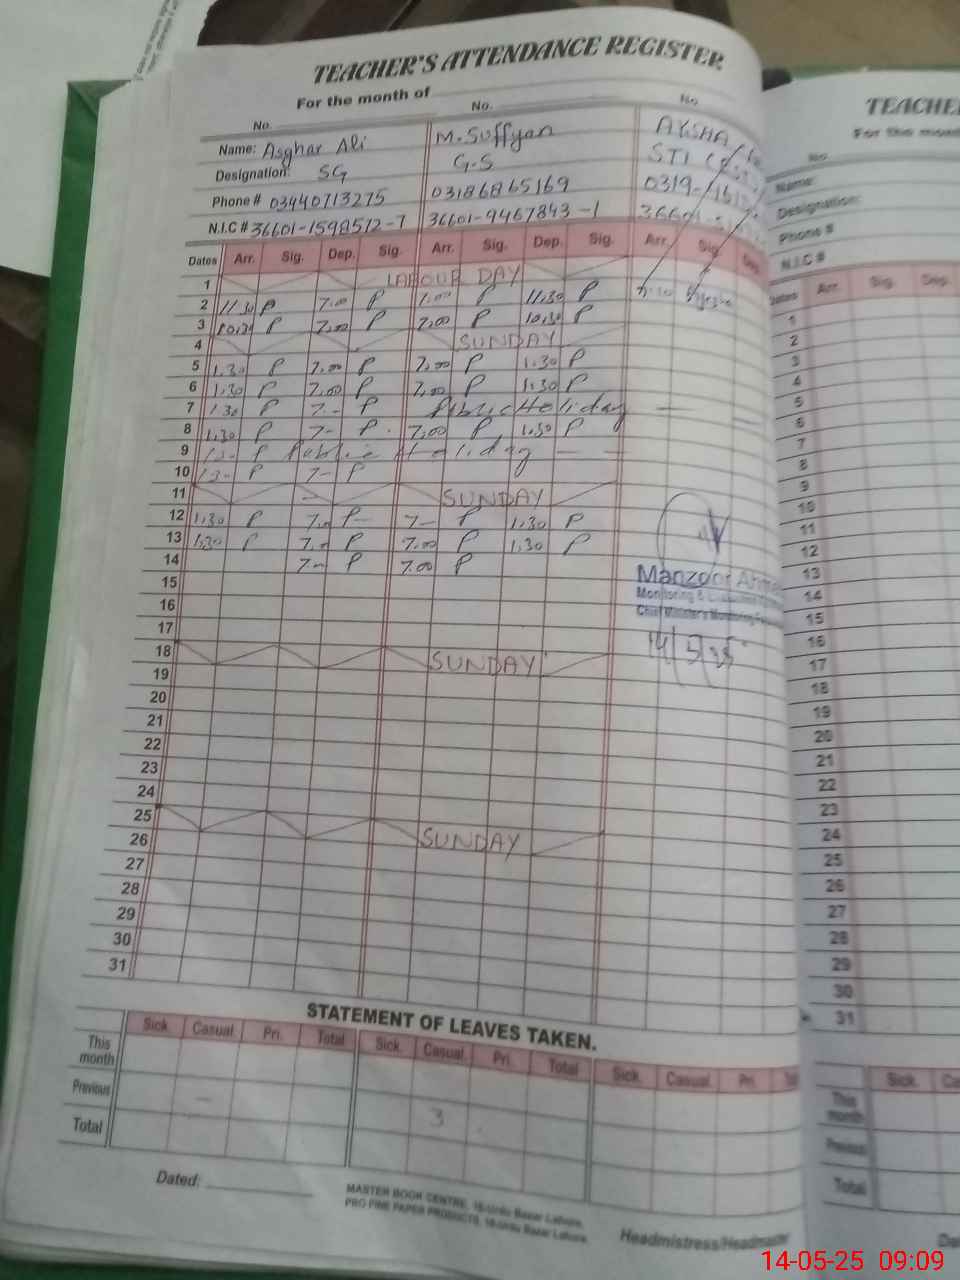 TEACHER'S ATTENDANCE REGISTER
For the month of
No. No. No.
Name: Asghar Ali M. Suffyan AYSHA
Designation: SG G-S STI
Phone # 03440713275 03186865169 0319-
N.I.C # 36601-1598572-7 36601-9467843-1 36601-
Dates Arr. Sig. Dep. Sig. Arr. Sig. Dep. Sig. Arr. Sig. Dep.
1 LABOUR DAY
2 11.30 P 7.00 P 7.00 P 11.30 P
3 10.30 P 7.00 P 7.00 P 10.30 P
4 SUNDAY
5 1.30 P 7.00 P 7.00 P 1.30 P
6 1.30 P 7.00 P 7.00 P 1.30 P
7 1.30 P 7.- P Public Holiday
8 1.30 P 7- P 7.00 P 1.30 P
9 P Public Holiday
10 P 7- P
11 SUNDAY
12 1.30 P 7.00 P 7- P 1.30 P
13 1.30 P 7.00 P 7.00 P 1.30 P
14 7.00 P 7.00 P
Manzoor
Monitoring &
Chief Minister's Monitoring
14/5/25
15
16
17
18 SUNDAY
19
20
21
22
23
24
25 SUNDAY
26
27
28
29
30
31
STATEMENT OF LEAVES TAKEN.
Sick. Casual. Pri. Total Sick. Casual. Pri. Total Sick. Casual. Pri.
This month
Previous - 3
Total
Dated:
MASTER BOOK CENTRE, 18-Urdu Bazar Lahore.
PRO PINE PAPER PRODUCTS, 18-Urdu Bazar Lahore.
Headmistress/Headmaster
TEACHE
For the mon
No
Name:
Designation:
Phone #
N.I.C #
Dates Arr. Sig. Dep.
1
2
3
4
5
6
7
8
9
10
11
12
13
14
15
16
17
18
19
20
21
22
23
24
25
26
27
28
29
30
31
Sick.
This month
Previous
Total
14-05-25 09:09